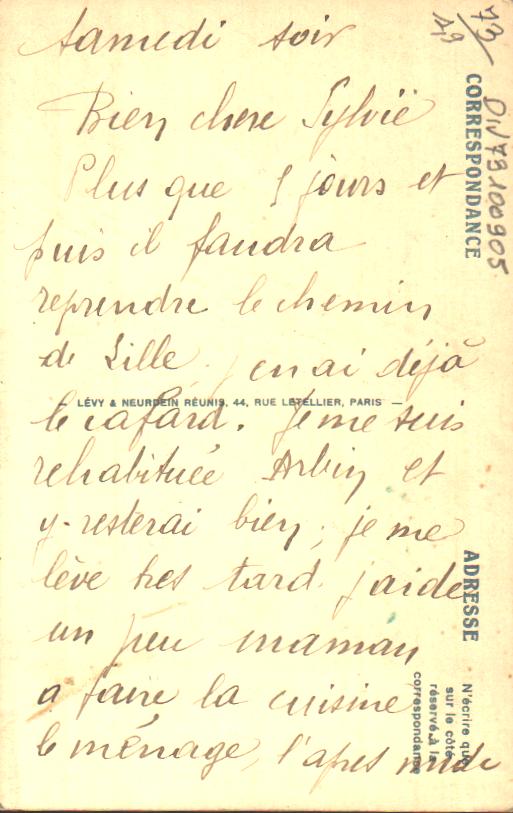 Samedi soir
Bien chere Sylvie
Plus que 8 jours et
puis il faudra
reprendre le chemin
de Lille. j'en ai déjà
le cafard. Je me suis
rehabituée Arbin et
y resterai bien, je me
lève tres tard. j'aide
un peu maman
a faire la cuisine
le ménage, l'apres midi
— LÉVY & NEURDEIN RÉUNIS, 44, RUE LETELLIER, PARIS —
CORRESPONDANCE
ADRESSE
N'écrire que
sur le côté
réservé à la
correspondance
73
49
DIV73100905